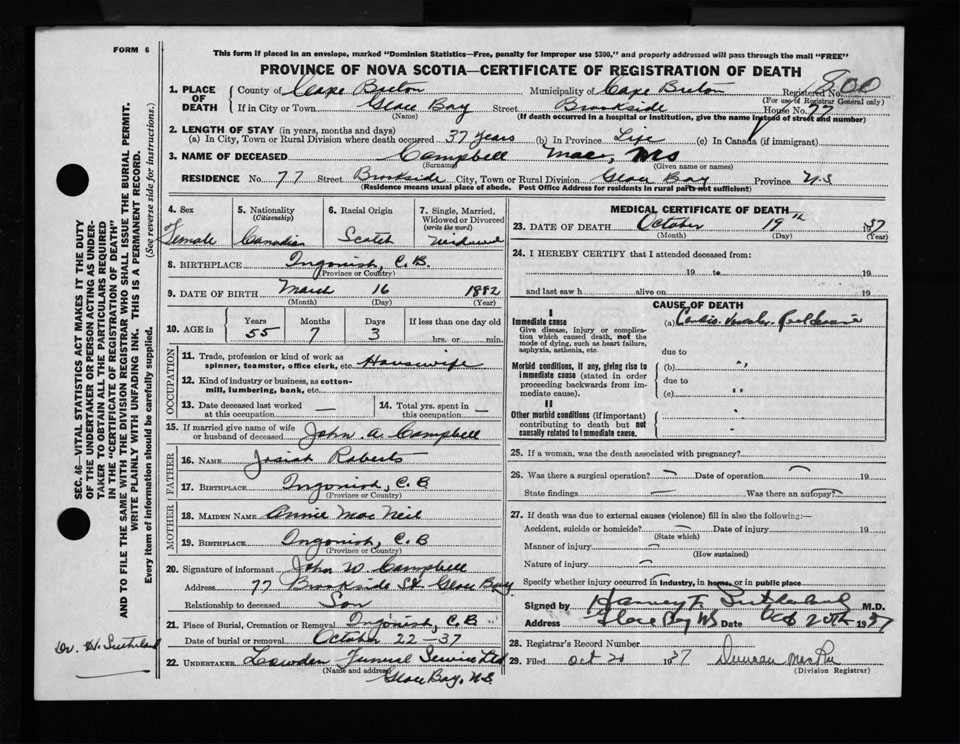 FORM 6
This form if placed in an envelope, marked "Dominion Statistics—Free, penalty for improper use $300," and properly addressed will pass through the mail "FREE"
PROVINCE OF NOVA SCOTIA—CERTIFICATE OF REGISTRATION OF DEATH
800
1. PLACE OF DEATH
County of Cape Breton Municipality of Cape Breton Registered No.
(For use of Registrar General only)
If in City or Town Glace Bay Street Brookside House No. 77
(Name) (If death occurred in a hospital or institution, give the name instead of street and number)
2. LENGTH OF STAY (in years, months and days)
(a) In City, Town or Rural Division where death occurred 37 years (b) In Province Life (c) In Canada (if immigrant)
3. NAME OF DECEASED Campbell Mae, Mrs
(Surname) (Given name or names)
RESIDENCE No. 77 Street Brookside City, Town or Rural Division Glace Bay Province N.S
(Residence means usual place of abode. Post Office Address for residents in rural parts not sufficient)
4. Sex
Female
5. Nationality
(Citizenship)
Canadian
6. Racial Origin
Scotch
7. Single, Married, Widowed or Divorced
(write the word)
Widowed
8. BIRTHPLACE Ingonish, C.B.
(Province or Country)
9. DATE OF BIRTH March 16 1882
(Month) (Day) (Year)
10. AGE in
Years Months Days If less than one day old
55 7 3 hrs. or min.
OCCUPATION
11. Trade, profession or kind of work as
spinner, teamster, office clerk, etc. Housewife
12. Kind of industry or business, as cotton-
mill, lumbering, bank, etc.
13. Date deceased last worked
at this occupation —
14. Total yrs. spent in
this occupation —
15. If married give name of wife
or husband of deceased John A. Campbell
FATHER
16. NAME Josiah Roberts
17. BIRTHPLACE Ingonish, C.B
(Province or Country)
MOTHER
18. MAIDEN NAME Annie MacNeil
19. BIRTHPLACE Ingonish, C.B
(Province or Country)
20. Signature of informant John W. Campbell
Address 77 Brookside St. Glace Bay
Relationship to deceased Son
21. Place of Burial, Cremation or Removal Ingonish, C.B
Date of burial or removal October 22 -37
22. UNDERTAKER Lowden Funeral Service Ltd
(Name and address)
Glace Bay, N.S.
MEDICAL CERTIFICATE OF DEATH
23. DATE OF DEATH October 19th 1937
(Month) (Day) (Year)
24. I HEREBY CERTIFY that I attended deceased from:
19 to 19
and last saw h alive on 19
CAUSE OF DEATH
I
Immediate cause
Give disease, injury or complica-
tion which caused death, not the
mode of dying, such as heart failure,
asphyxia, asthenia, etc.
(a)
due to
Morbid conditions, if any, giving rise to
immediate cause (stated in order
proceeding backwards from im-
mediate cause).
(b) "
due to
(c) "
II
Other morbid conditions (if important)
contributing to death but not
causally related to immediate cause.
25. If a woman, was the death associated with pregnancy?
26. Was there a surgical operation? — Date of operation — 19
State findings — Was there an autopsy? —
27. If death was due to external causes (violence) fill in also the following:—
Accident, suicide or homicide? — Date of injury 19
(State which)
Manner of injury —
(How sustained)
Nature of injury —
Specify whether injury occurred in industry, in home, or in public place
Signed by Harvey F. Sutherland M.D.
Address Glace Bay NS Date Oct 20th 1937
28. Registrar's Record Number
29. Filed Oct 20 1937 Duncan MacRae
(Division Registrar)
SEC. 46—VITAL STATISTICS ACT MAKES IT THE DUTY
OF THE UNDERTAKER OR PERSON ACTING AS UNDER-
TAKER TO OBTAIN ALL THE PARTICULARS REQUIRED
IN THE "CERTIFICATE OF REGISTRATION OF DEATH"
AND TO FILE THE SAME WITH THE DIVISION REGISTRAR WHO SHALL ISSUE THE BURIAL PERMIT.
WRITE PLAINLY WITH UNFADING INK. THIS IS A PERMANENT RECORD.
Every item of information should be carefully supplied. (See reverse side for instructions.)
Dr. H. Sutherland